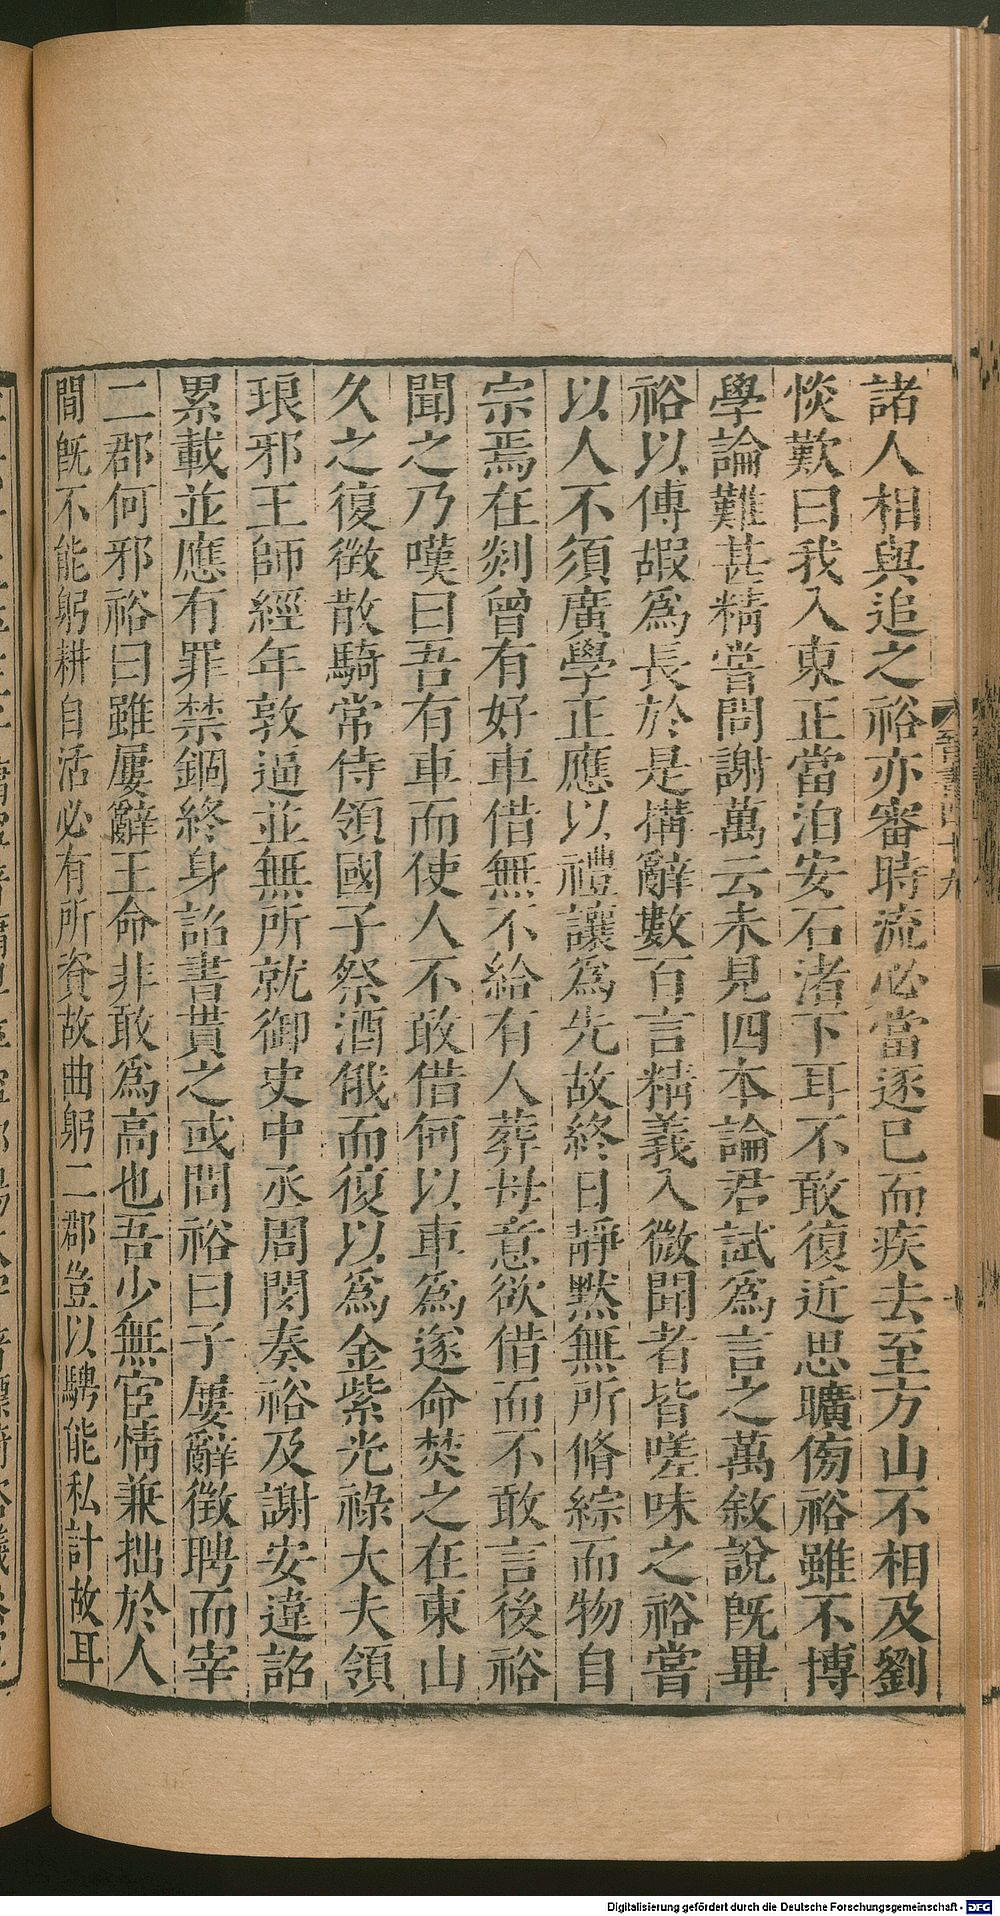 諸人相與追之裕亦審時流必當逐已而疾去至方山不相及劉
惔歎曰我入東正當泊安石渚下耳不敢復近思曠傍裕雖不博
學論難甚精嘗問謝萬云未見四本論君試爲言之萬敘說旣畢
裕以傅嘏爲長於是搆辭數百言精義入微聞者皆嗟味之裕嘗
以人不須廣學正應以禮讓爲先故終日靜默無所脩綜而物自
宗焉在剡曾有好車借無不給有人葬母意欲借而不敢言後裕
聞之乃嘆曰吾有車而使人不敢借何以車爲遂命焚之在東山
久之復徵散騎常侍領國子祭酒俄而復以爲金紫光祿大夫領
琅邪王師經年敦逼並無所就御史中丞周閔奏裕及謝安違詔
累載並應有罪禁錮終身詔書貰之或問裕曰子屢辭徵聘而宰
二郡何邪裕曰雖屢辭王命非敢爲高也吾少無宦情兼拙於人
間旣不能躬耕自活必有所資故曲躬二郡豈以騁能私計故耳
晉書四十九
Digitalisierung gefördert durch die Deutsche Forschungsgemeinschaft - DFG